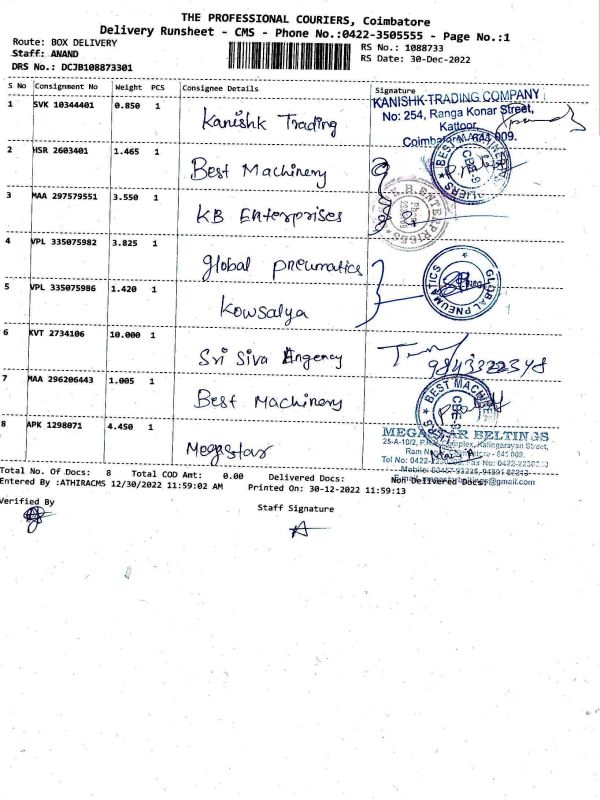 THE PROFESSIONAL COURIERS, Coimbatore
Delivery Runsheet - CMS - Phone No.:0422-3505555 - Page No.:1
Route: BOX DELIVERY
Staff: ANAND
DRS No.: DCJB108873301
RS No.: 1088733
RS Date: 30-Dec-2022
S No Consignment No Weight PCS Consignee Details Signature
1 SVK 10344401 0.850 1 Kanishk Trading
KANISHK TRADING COMPANY
No: 254, Ranga Konar Street,
Kattoor,
2 HSR 2603401 1.465 1 Best Machinery
3 MAA 297579551 3.550 1 KB Enterprises
4 VPL 335075982 3.825 1 Global Pneumatics
GLOBAL PNEUMATICS
5 VPL 335075986 1.420 1 Kowsalya
6 KVT 2734106 10.000 1 Sri Siva Angency
9843322348
7 MAA 296206443 1.005 1 Best Machinery
8 APK 1298071 4.450 1 Megastar
MEGASTAR BELTINGS
Total No. Of Docs: 8 Total COD Amt: 0.00 Delivered Docs: Non Delivered Docs:
Entered By :ATHIRACMS 12/30/2022 11:59:02 AM Printed On: 30-12-2022 11:59:13
Verified By
Staff Signature